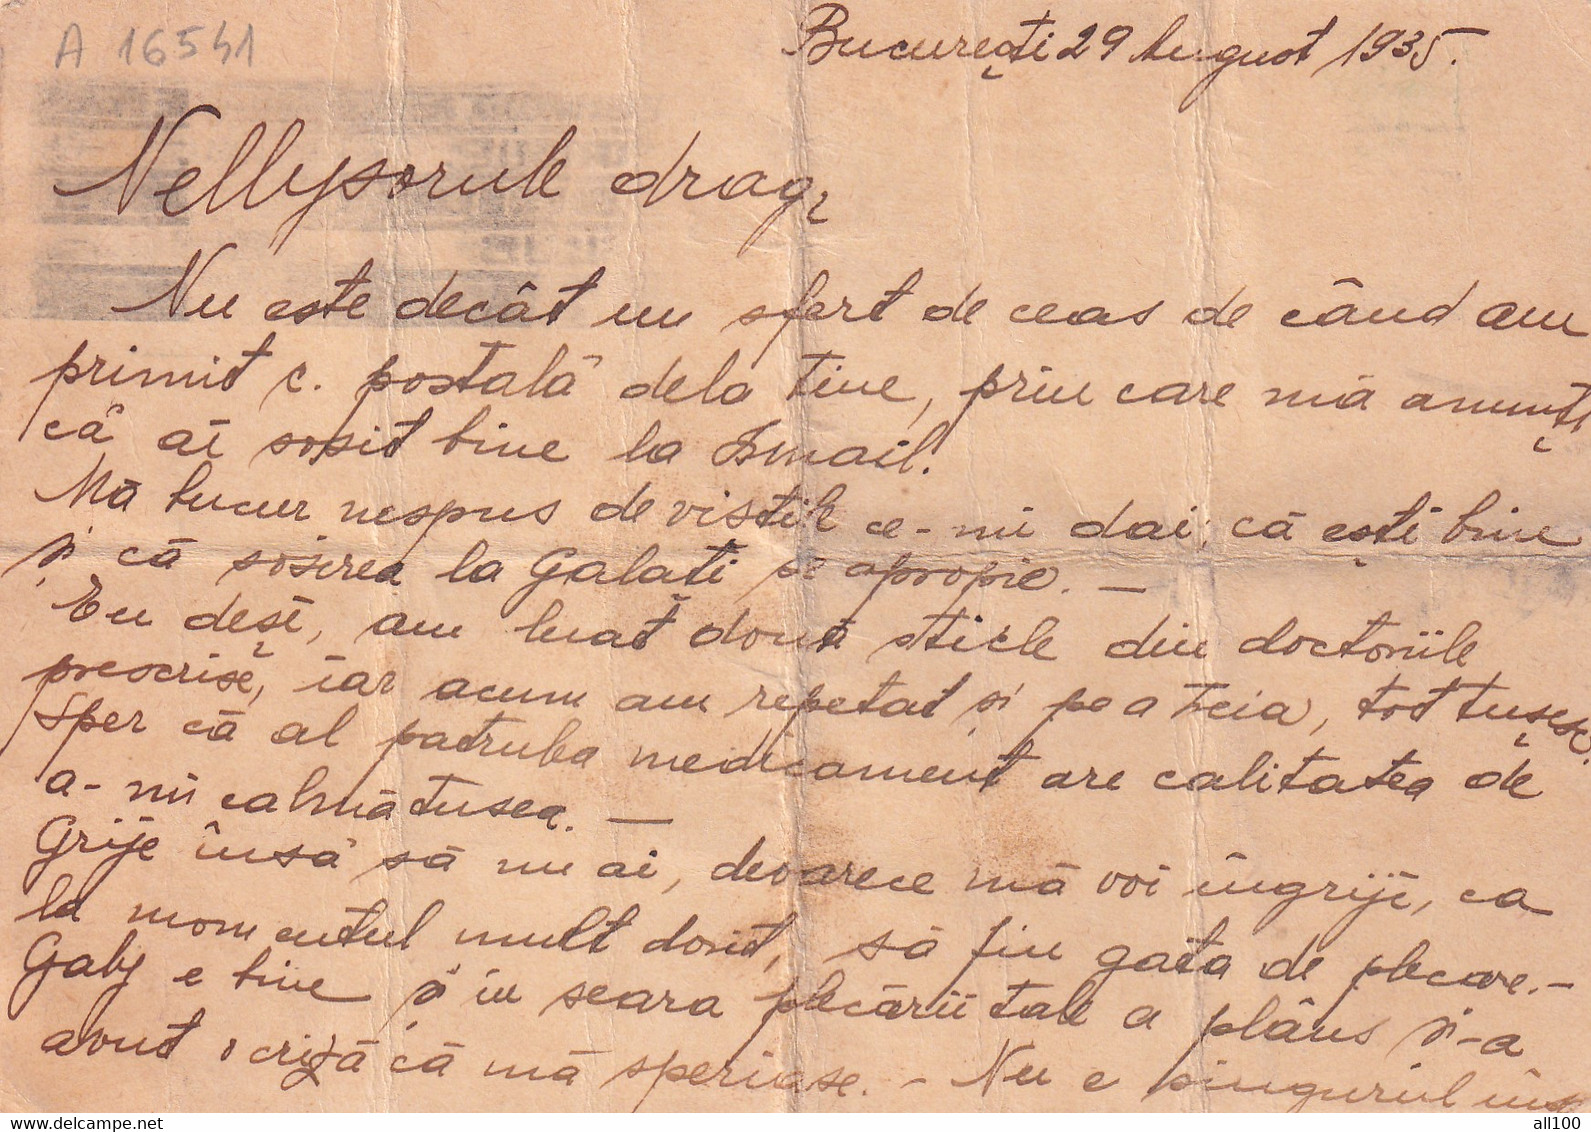 A 16541
București 29 August 1935.
Nellysorule drag,
Nu este decât un sfert de ceas de când am
primit c. postală dela tine, prin care mă anunți
că ai sosit bine la Ismail.
Mă bucur nespus de veștile ce-mi dai, că ești bine
și că sosirea la Galați se apropie. —
Eu deși, am luat două sticle din doctoriile
prescrise, iar acum am repetat și pe a treia, tot tușesc.
Sper că al patrulea medicament are calitatea de
a-mi calma tusea. —
Grije însă să nu ai, deoarece mă voi îngriji, ca
la momentul mult dorit, să fiu gata de plecare. —
Gaby e bine și în seara plecării tale a plâns și-a
avut o criză că mă speriase. — Nu e singurul îns
delcampe.net
all100